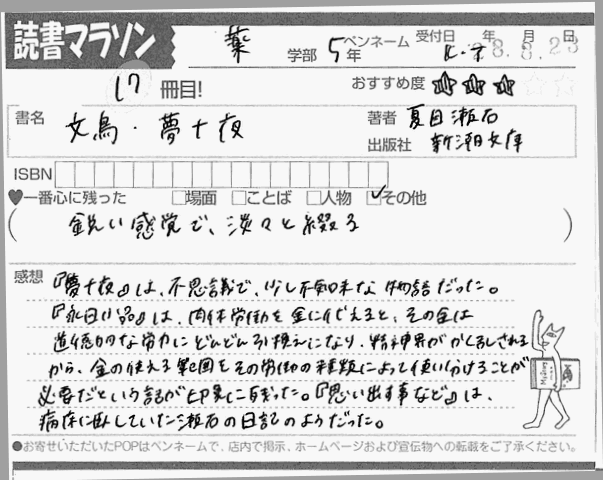 読書マラソン
薬 学部 5年 ペンネーム K.K 受付日 年 月 日
8.8.23
17冊目!
おすすめ度 ☆☆☆☆☆
書名 文鳥・夢十夜
著者 夏目瀬石
出版社 新潮文庫
ISBN
♥一番心に残った □場面 □ことば □人物 ☑その他
(鋭い感覚で、淡々と綴る)
感想
『夢十夜』は、不思議で、少し不気味な物語だった。
『永日小品』は、肉体労働を金に代えると、その金は
道徳的な労力にどんどん引換えになり、精神界がかくらんされる
から、金の使える範囲をその労働の種類によって使い分けることが
必要だという話が印象に残った。『思い出す事など』は、
病床に臥していた瀬石の日記のようだった。
●お寄せいただいたPOPはペンネームで、店内で掲示、ホームページおよび宣伝物への転載をご了承ください。